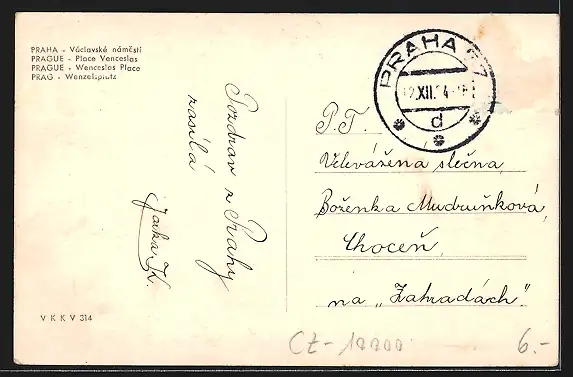 PRAHA - Václavské náměstí
PRAGUE - Place Venceslas
PRAGUE - Wenceslas Place
PRAG - Wenzelsplatz
Pozdrav z Prahy
zasílá
Jarka K.
V K K V 314
PRAHA 57
XII.
d
P. T.
Velevážena slečna
Boženka Mudruňková,
Choceň,
na „Zahradách".
CZ-18800
6.-